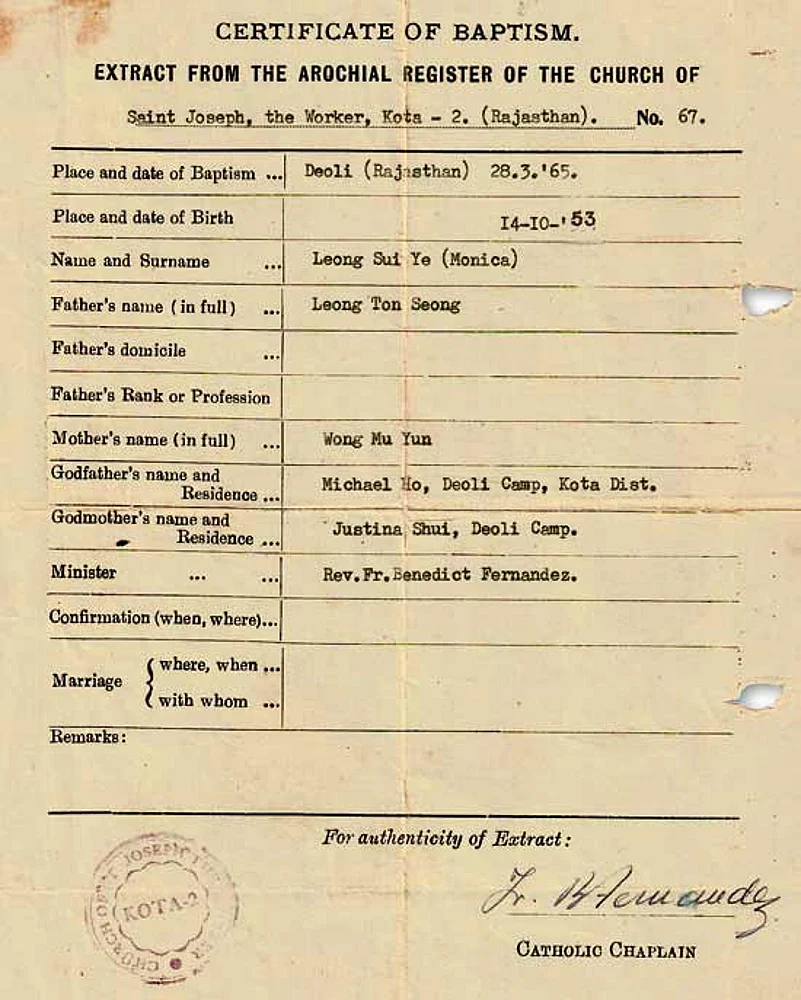 CERTIFICATE OF BAPTISM.
EXTRACT FROM THE AROCHIAL REGISTER OF THE CHURCH OF
Saint Joseph, the Worker, Kota - 2. (Rajasthan). No. 67.
Place and date of Baptism ... Deoli (Rajasthan) 28.3.'65.
Place and date of Birth 14-10-'53
Name and Surname ... Leong Sui Ye (Monica)
Father's name (in full) ... Leong Ton Seong
Father's domicile ...
Father's Rank or Profession
Mother's name (in full) ... Wong Mu Yun
Godfather's name and
Residence ... Michael Ho, Deoli Camp, Kota Dist.
Godmother's name and
Residence ... Justina Shui, Deoli Camp.
Minister ... ... Rev.Fr.Benedict Fernandez.
Confirmation (when, where)...
Marriage { where, when ...
with whom ...
Remarks:
For authenticity of Extract:
Fr. B Fernandez
CATHOLIC CHAPLAIN
CHURCH OF ST JOSEPH THE
KOTA-2